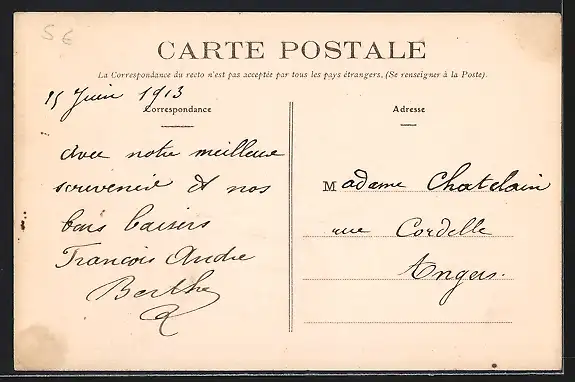 5 €
CARTE POSTALE
La Correspondance du recto n'est pas acceptée par tous les pays étrangers, (Se renseigner à la Poste).
15 Juin 1913
Correspondance
avec notre meilleur
souvenir et nos
bons baisers
François André
Berthe
Adresse
Madame Chatelain
rue Cordelle
Angers.